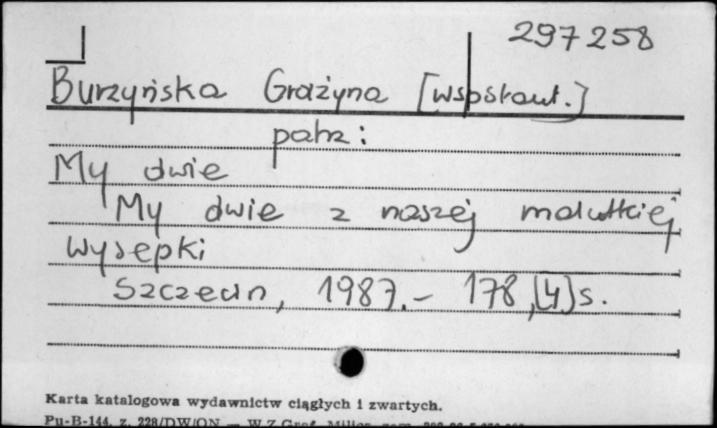 297258
Burzyńska Grażyna [współaut.]
patrz:
My dwie
My dwie z naszej malutkiej
wysepki
Szczecin, 1987.- 178,[4]s.
Karta katalogowa wydawnictw ciągłych i zwartych.
Pu-B-144, z. 228/DW/ON — W.Z.Graf.